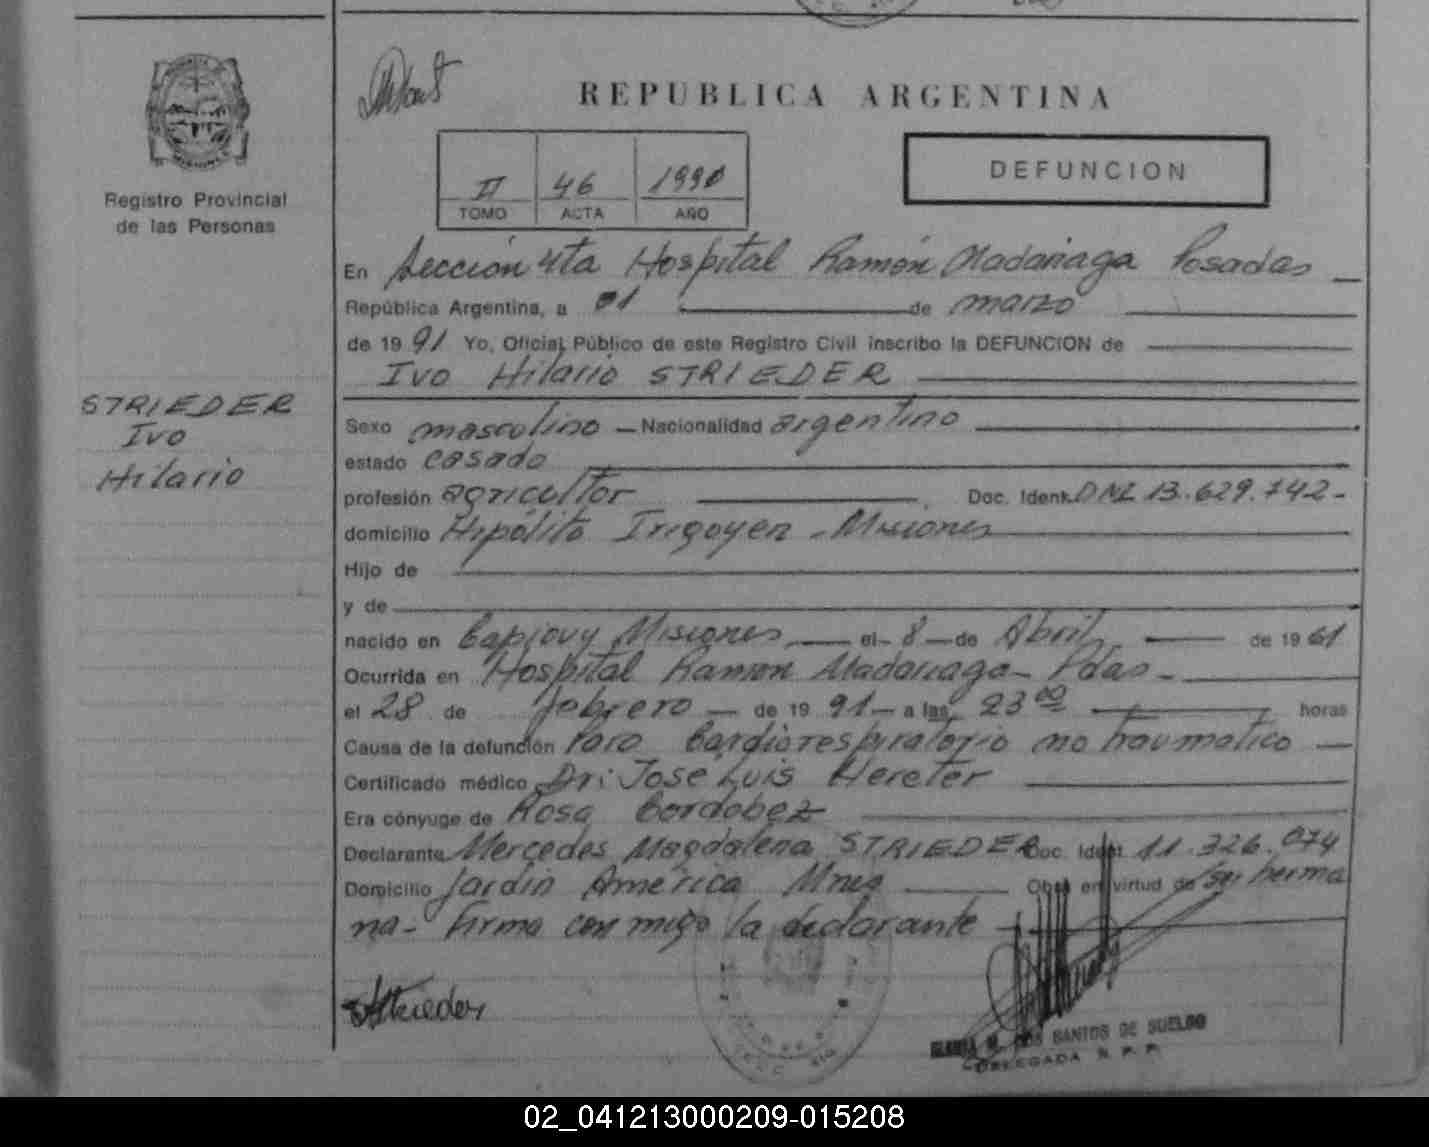 REPUBLICA ARGENTINA
DEFUNCION
II 46 1990
TOMO ACTA AÑO
Registro Provincial
de las Personas
En Sección 4ta Hospital Ramón Madariaga Posadas
República Argentina, a 01 de marzo
de 1991 Yo, Oficial Público de este Registro Civil inscribo la DEFUNCION de
Ivo Hilario STRIEDER
STRIEDER
Ivo
Hilario
Sexo masculino Nacionalidad argentino
estado casado
profesión agricultor Doc. Ident. DNI 13.629.742-
domicilio Hipólito Irigoyen - Misiones
Hijo de
y de
nacido en Capiovy Misiones el 8 de Abril de 1961
Ocurrida en Hospital Ramón Madariaga - Pdas -
el 28 de febrero de 1991 a las 23 00 horas
Causa de la defunción Paro Cardiorespiratorio no traumatico
Certificado médico Dr: José Luis Hereter
Era cónyuge de Rosa Cordobez
Declarante Mercedes Magdalena STRIEDER Doc. Ident. 11.326.074
Domicilio Jardín América Mnes Obra en virtud de su herma
na - firma con migo la declarante
DOS SANTOS DE SUELDO
DELEGADA R. P. P.
02_041213000209-015208